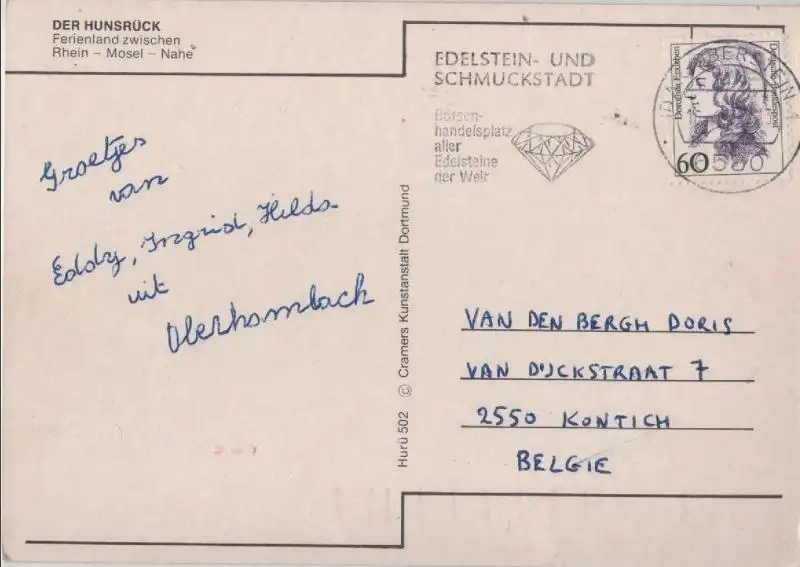 DER HUNSRÜCK
Ferienland zwischen
Rhein – Mosel – Nahe
EDELSTEIN- UND
SCHMUCKSTADT
Börsen-
handelsplatz
aller
Edelsteine
der Welt
Dorothea Erxleben
Deutsche Bundespost
60
Groetjes
van
Eddy, Ingrid, Hilda
uit
Oberhambach
Hurü 502 © Cramers Kunstanstalt Dortmund
VAN DEN BERGH DORIS
VAN DIJCKSTRAAT 7
2550 KONTICH
BELGIE